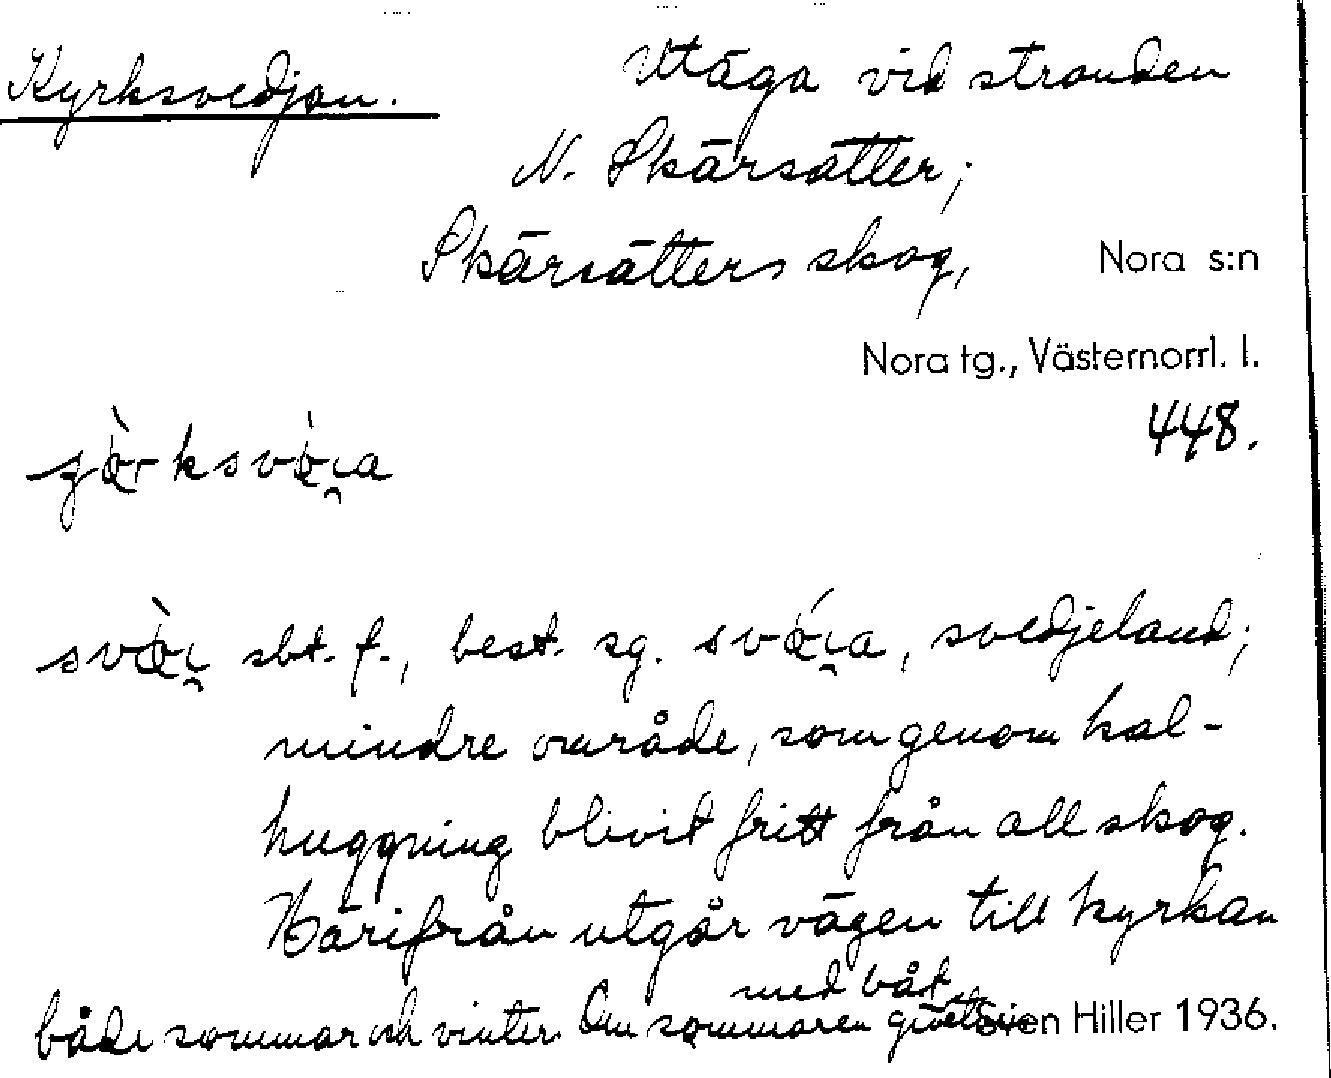 Kyrksvedjan. Utäga vid stranden
N. Skärsätter;
Skärsätters skog, Nora s:n
Nora tg., Västernorrl. l.
448.
sbt. f., best. sg. , svedjeland;
mindre område, som genom kal-
huggning blivit fritt från all skog.
Härifrån utgår vägen till kyrkan
med båt
både sommar och vinter. Om sommaren Sven Hiller 1936.